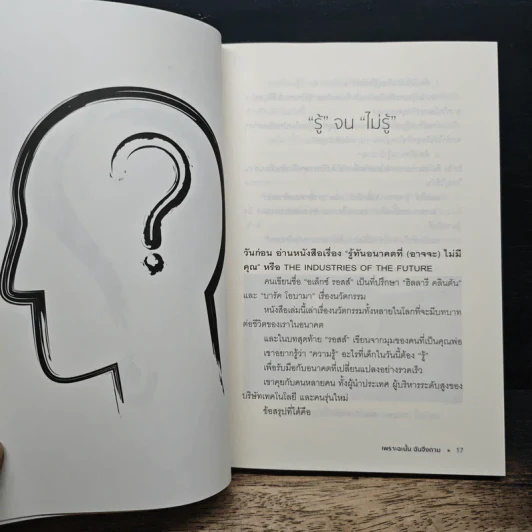 “รู้” จน “ไม่รู้”
วันก่อน อ่านหนังสือเรื่อง “รู้ทันอนาคตที่ (อาจจะ) ไม่มี
คุณ” หรือ THE INDUSTRIES OF THE FUTURE
คนเขียนชื่อ “อเล็กซ์ รอสส์” เป็นที่ปรึกษา “ฮิลลารี คลินตัน”
และ “บารัค โอบามา” เรื่องนวัตกรรม
หนังสือเล่มนี้เล่าเรื่องนวัตกรรมทั้งหลายในโลกที่จะมีบทบาท
ต่อชีวิตของเราในอนาคต
และในบทสุดท้าย “รอสส์” เขียนจากมุมของคนที่เป็นคุณพ่อ
เขาอยากรู้ว่า “ความรู้” อะไรที่เด็กในวันนี้ต้อง “รู้”
เพื่อรับมือกับอนาคตที่เปลี่ยนแปลงอย่างรวดเร็ว
เขาคุยกับคนหลายคน ทั้งผู้นำประเทศ ผู้บริหารระดับสูงของ
บริษัทเทคโนโลยี และคนรุ่นใหม่
ข้อสรุปที่ได้คือ
เพราะฉะนั้น ฉันจึงถาม • 17